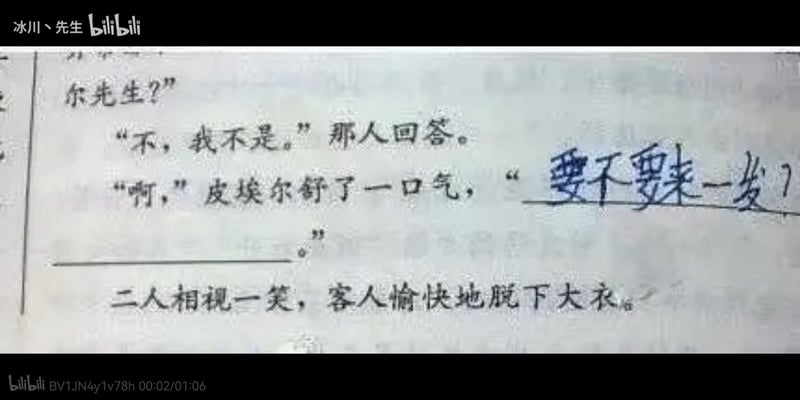 冰川丶先生 bilibili
尔先生?”
“不，我不是。”那人回答。
“啊，”皮埃尔舒了一口气，“要不要来一发?
。”
二人相视一笑，客人愉快地脱下大衣。
bilibili BV1JN4y1v78h 00:02/01:06